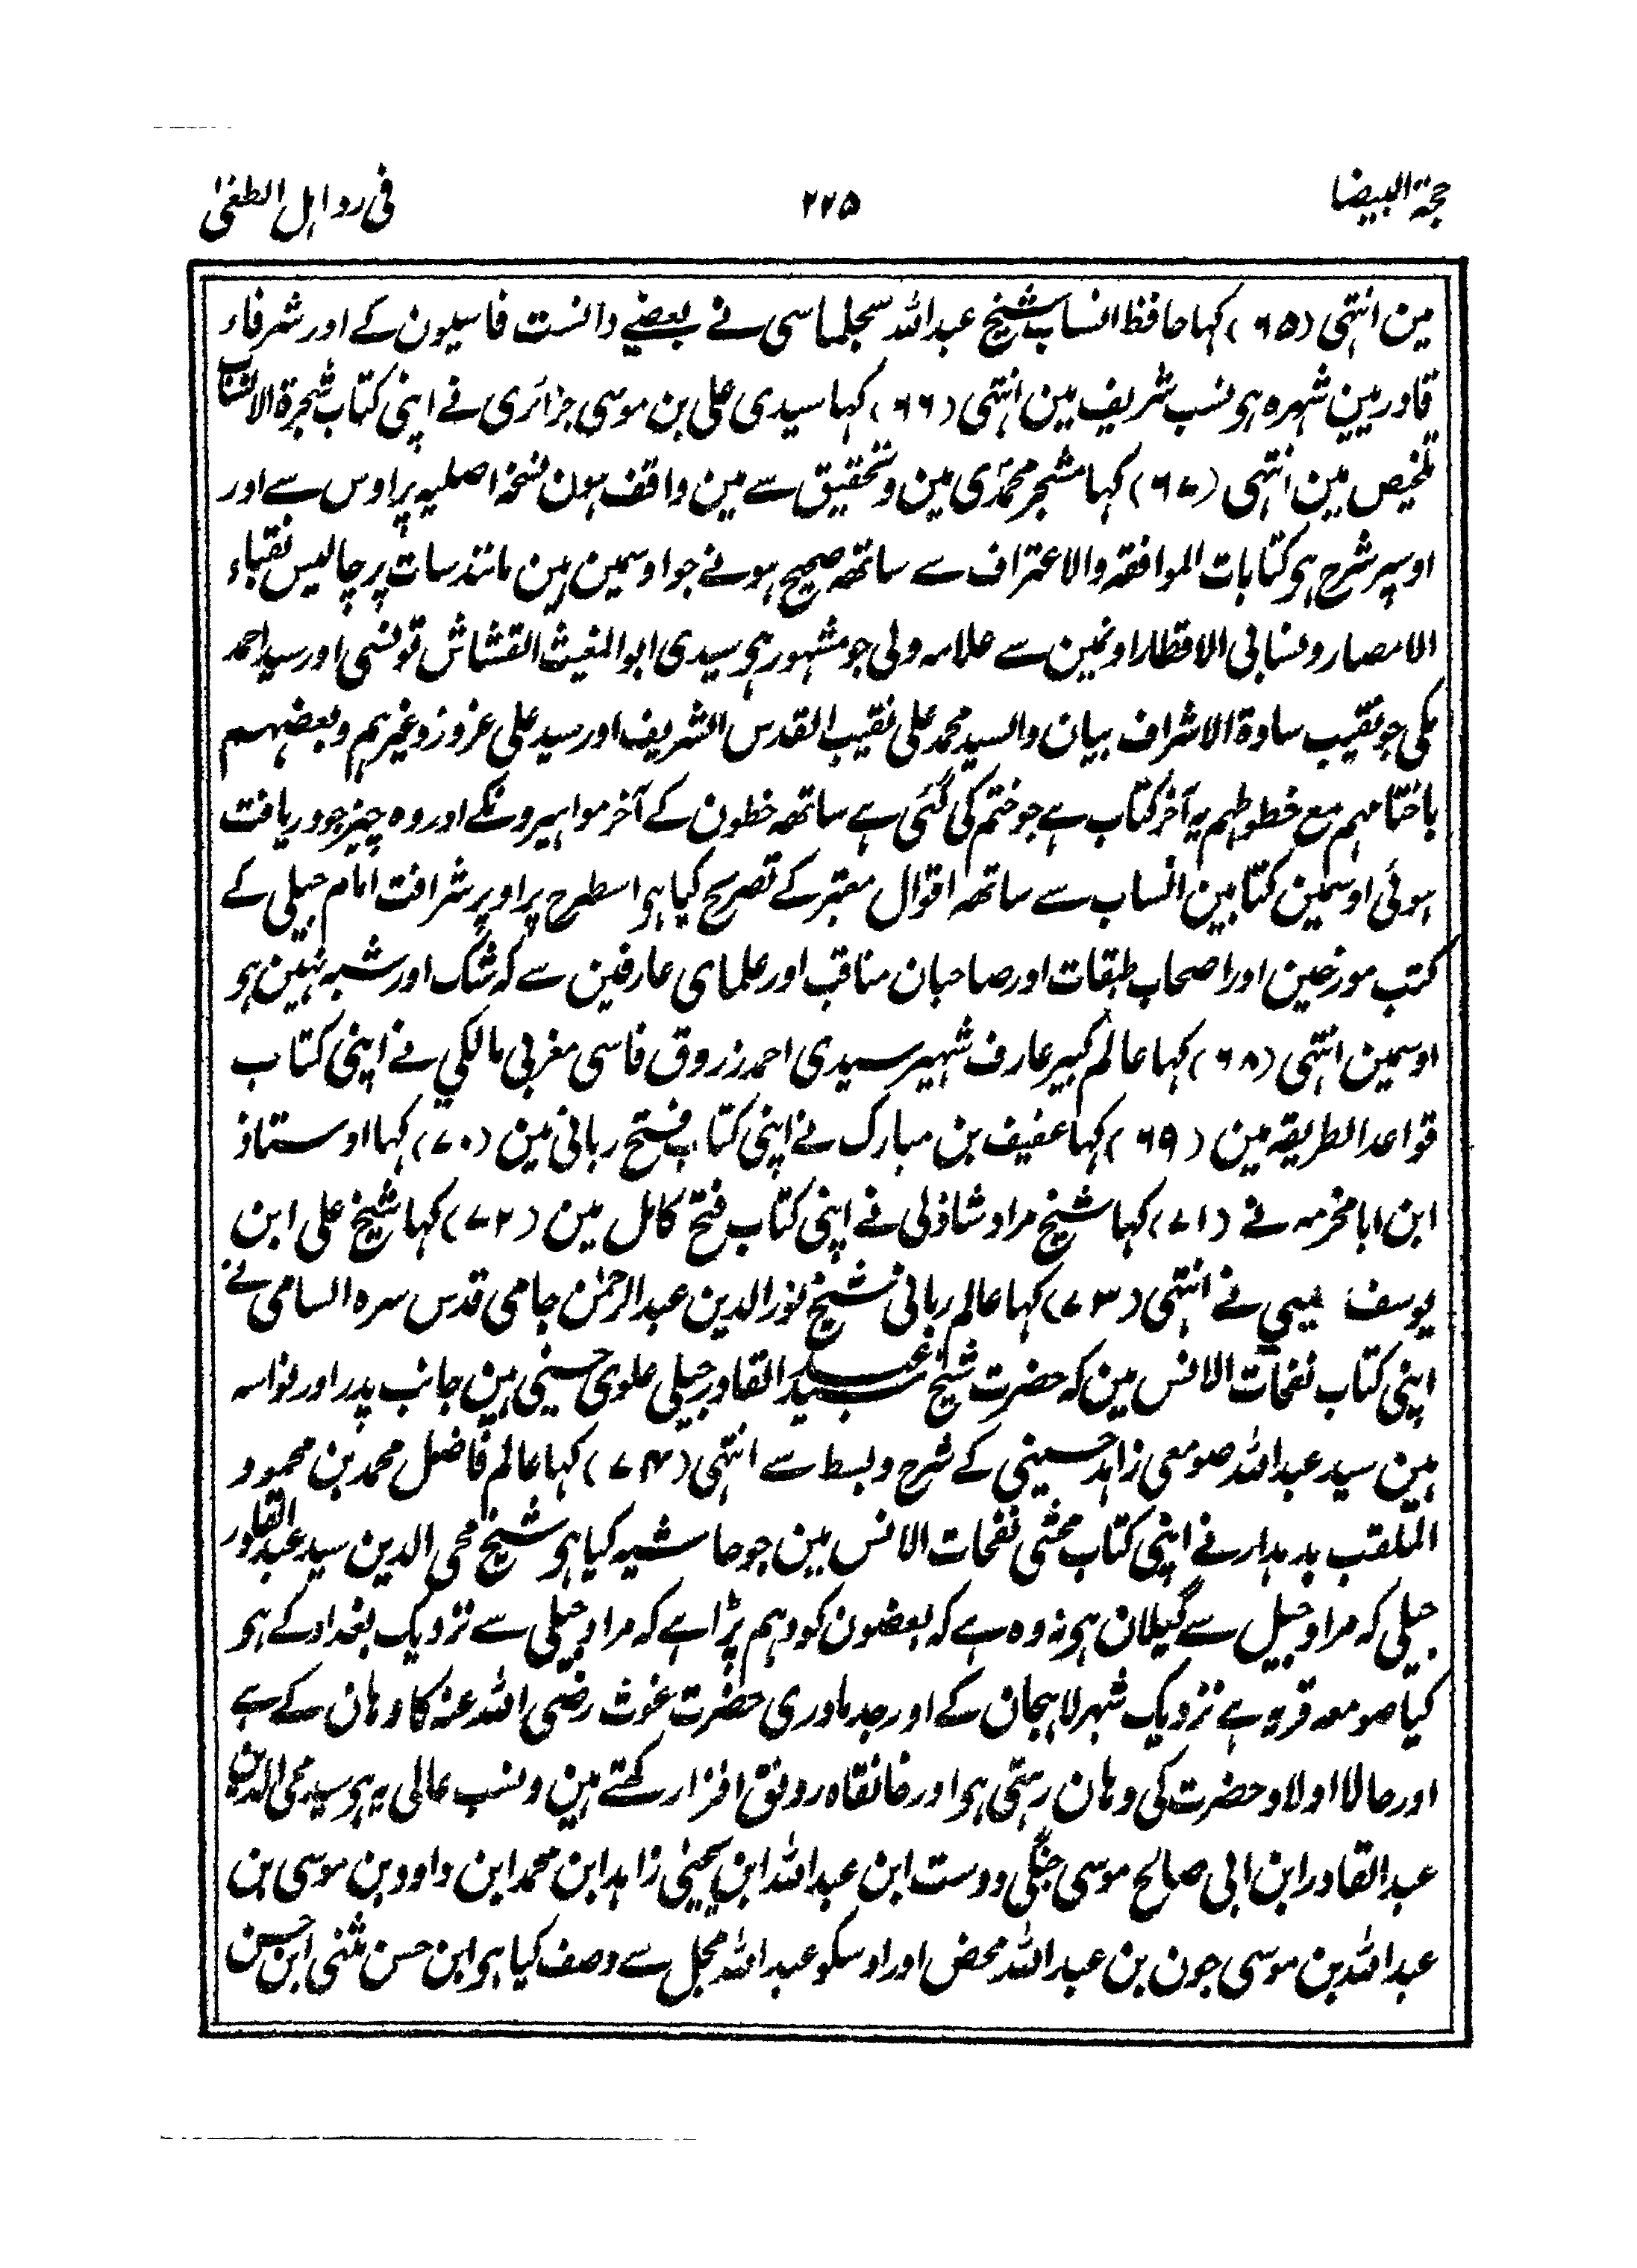 حجۃ البیضا
۲۲۵
فی رد اہل الطغیٰ
مین انتہی (۶۵) کہا حافظ انساب شیخ عبداللہ سجلماسی نے بعضے دانست فاسیلون کے اور شرفاء
قادریین شہرہ ہو نسب شریف مین انتہی (۶۶) کہا سیدی علی بن موسی جزائری نے اپنی کتاب شجرۃ الانساب
تلخیص مین انتہی (۶۷) کہا مشجر محمدی مین وتحقیق سے مین واقف ہون نسخہ اصلیہ پر اوس سے اور
اوسپر شرح ہو کتابات الموافقہ والاعتراف سے ساتھہ صحیح ہونے جو اوسمین ہین مانند سات پر چالیس نقباء
الامصار ونسابی الاقطار اونمین سے علامہ ولی جو مشہور ہو سیدی ابو المغیث القشاش تونسی اور سید احمد
مکی جو نقیب سادۃ الاشراف بیان والسید محمد علی نقیب القدس الشریف اور سید علی عزوز وغیرہم وبعضہم
باختامہم مع خطوطہم یہ آخر کتاب ہے جو ختم کی گئی ہے ساتھہ خطون کے آخر مواہیرونکے اور وہ چیز جو دریافت
ہوئی اوسمین کتابین انساب سے ساتھہ اقوال معتبر کے تصریح کیا ہو اسطرح پر اوپر شرافت امام جیلی کے
کتب مورخین اور اصحاب طبقات اور صاحبان مناقب اور علمای عارفین سے کہ شک اور شبہ نہین ہو
اوسمین انتہی (۶۸) کہا عالم کبیر عارف شہیر سیدی احمد زروق فاسی مغربی مالکی نے اپنی کتاب
قواعد الطریقہ مین (۶۹) کہا عفیف بن مبارک نے اپنی کتاب فتح ربانی مین (۷۰) کہا اوستاذ
ابن ابا مخرمہ نے (۷۱) کہا شیخ مراد شاذلی نے اپنی کتاب فتح کامل مین (۷۲) کہا شیخ علی ابن
یوسف نے انتہی (۷۳) کہا عالم ربانی شیخ نور الدین عبدالرحمٰن جامی قدس سرہ السامی نے
اپنی کتاب نفحات الانس مین کہ حضرت شیخ سید عبد القادر جیلی علوی حسنی ہین جانب پدر اور نواسہ
ہین سید عبداللہ صومعی زاہد حسینی کے شرح وبسط سے انتہی (۷۴) کہا عالم فاضل محمد بن محمود
الملقب بدہدار نے اپنی کتاب محشی نفحات الانس مین جو حاشیہ کیا ہو شیخ محی الدین سید عبد القادر
جیلی کہ مراد جیل سے گیلان ہو نہ وہ ہے کہ بعضون کو وہم پڑا ہے کہ مراد جیلی سے نزدیک بغداد کے ہو
کیا صومعہ قریہ ہے نزدیک شہر لاہیجان کے اور جد مادری حضرت غوث رضی اللہ عنہ کا وہان کے ہے
اور حالا اولاد حضرت کی وہان رہتی ہو اور خانقاہ رونق افزا رکھتے ہین ونسب عالی یہ ہو سید محی الدین
عبد القادر ابن ابی صالح موسی جنگی دوست ابن عبداللہ ابن یحییٰ زاہد ابن محمد ابن داوود بن موسی بن
عبداللہ بن موسی جون بن عبداللہ محض اور اوسکو عبداللہ مجل سے وصف کیا ہو ابن حسن مثنی ابن حسن